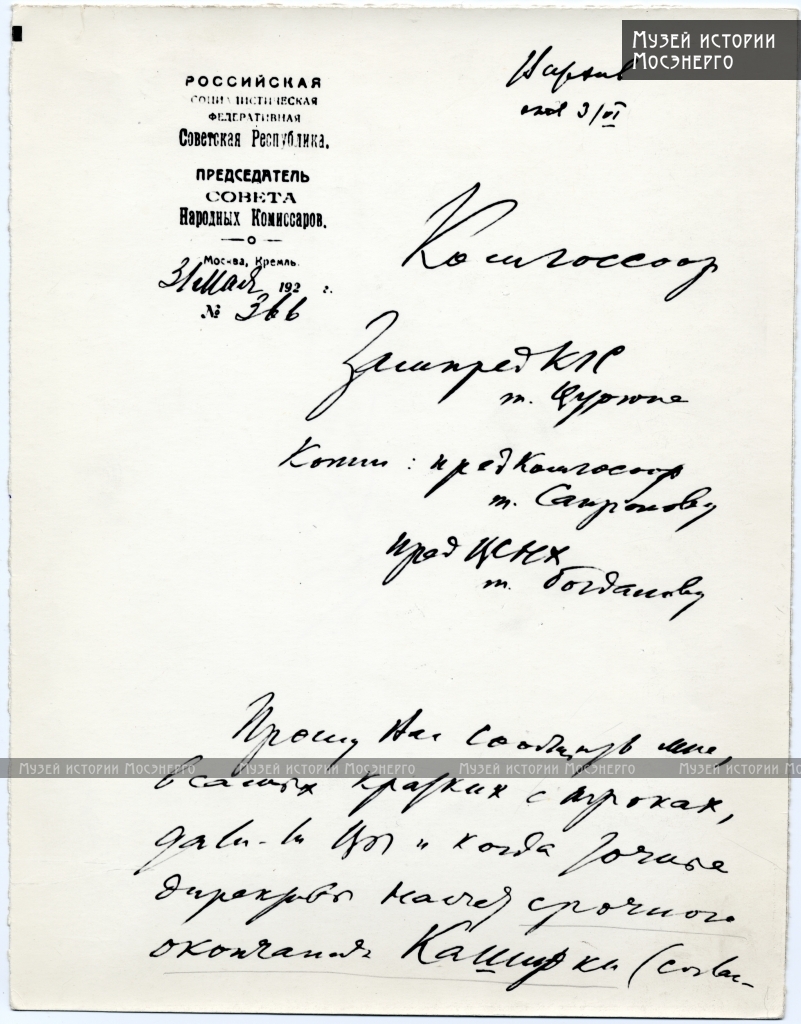 Музей истории
Мосэнерго
РОССИЙСКАЯ
СОЦИАЛИСТИЧЕСКАЯ
ФЕДЕРАТИВНАЯ
Советская Республика.
ПРЕДСЕДАТЕЛЬ
СОВЕТА
Народных Комиссаров.
Москва, Кремль.
31 Мая 192 г.
№ 366
3/VI
Комгоссоор
т. Цурюпе
Копии: пред Комгоссоор
т. Сапронову
пред ЦСНХ
т. Богданову
Прошу Вас сообщить мне,
Музей истории Мосэнерго Музей истории Мосэнерго Музей истории Мосэнерго Музей
в самых кратких строках,
дали-ли Вы и когда точные
директивы насчет срочного
окончания Каширки